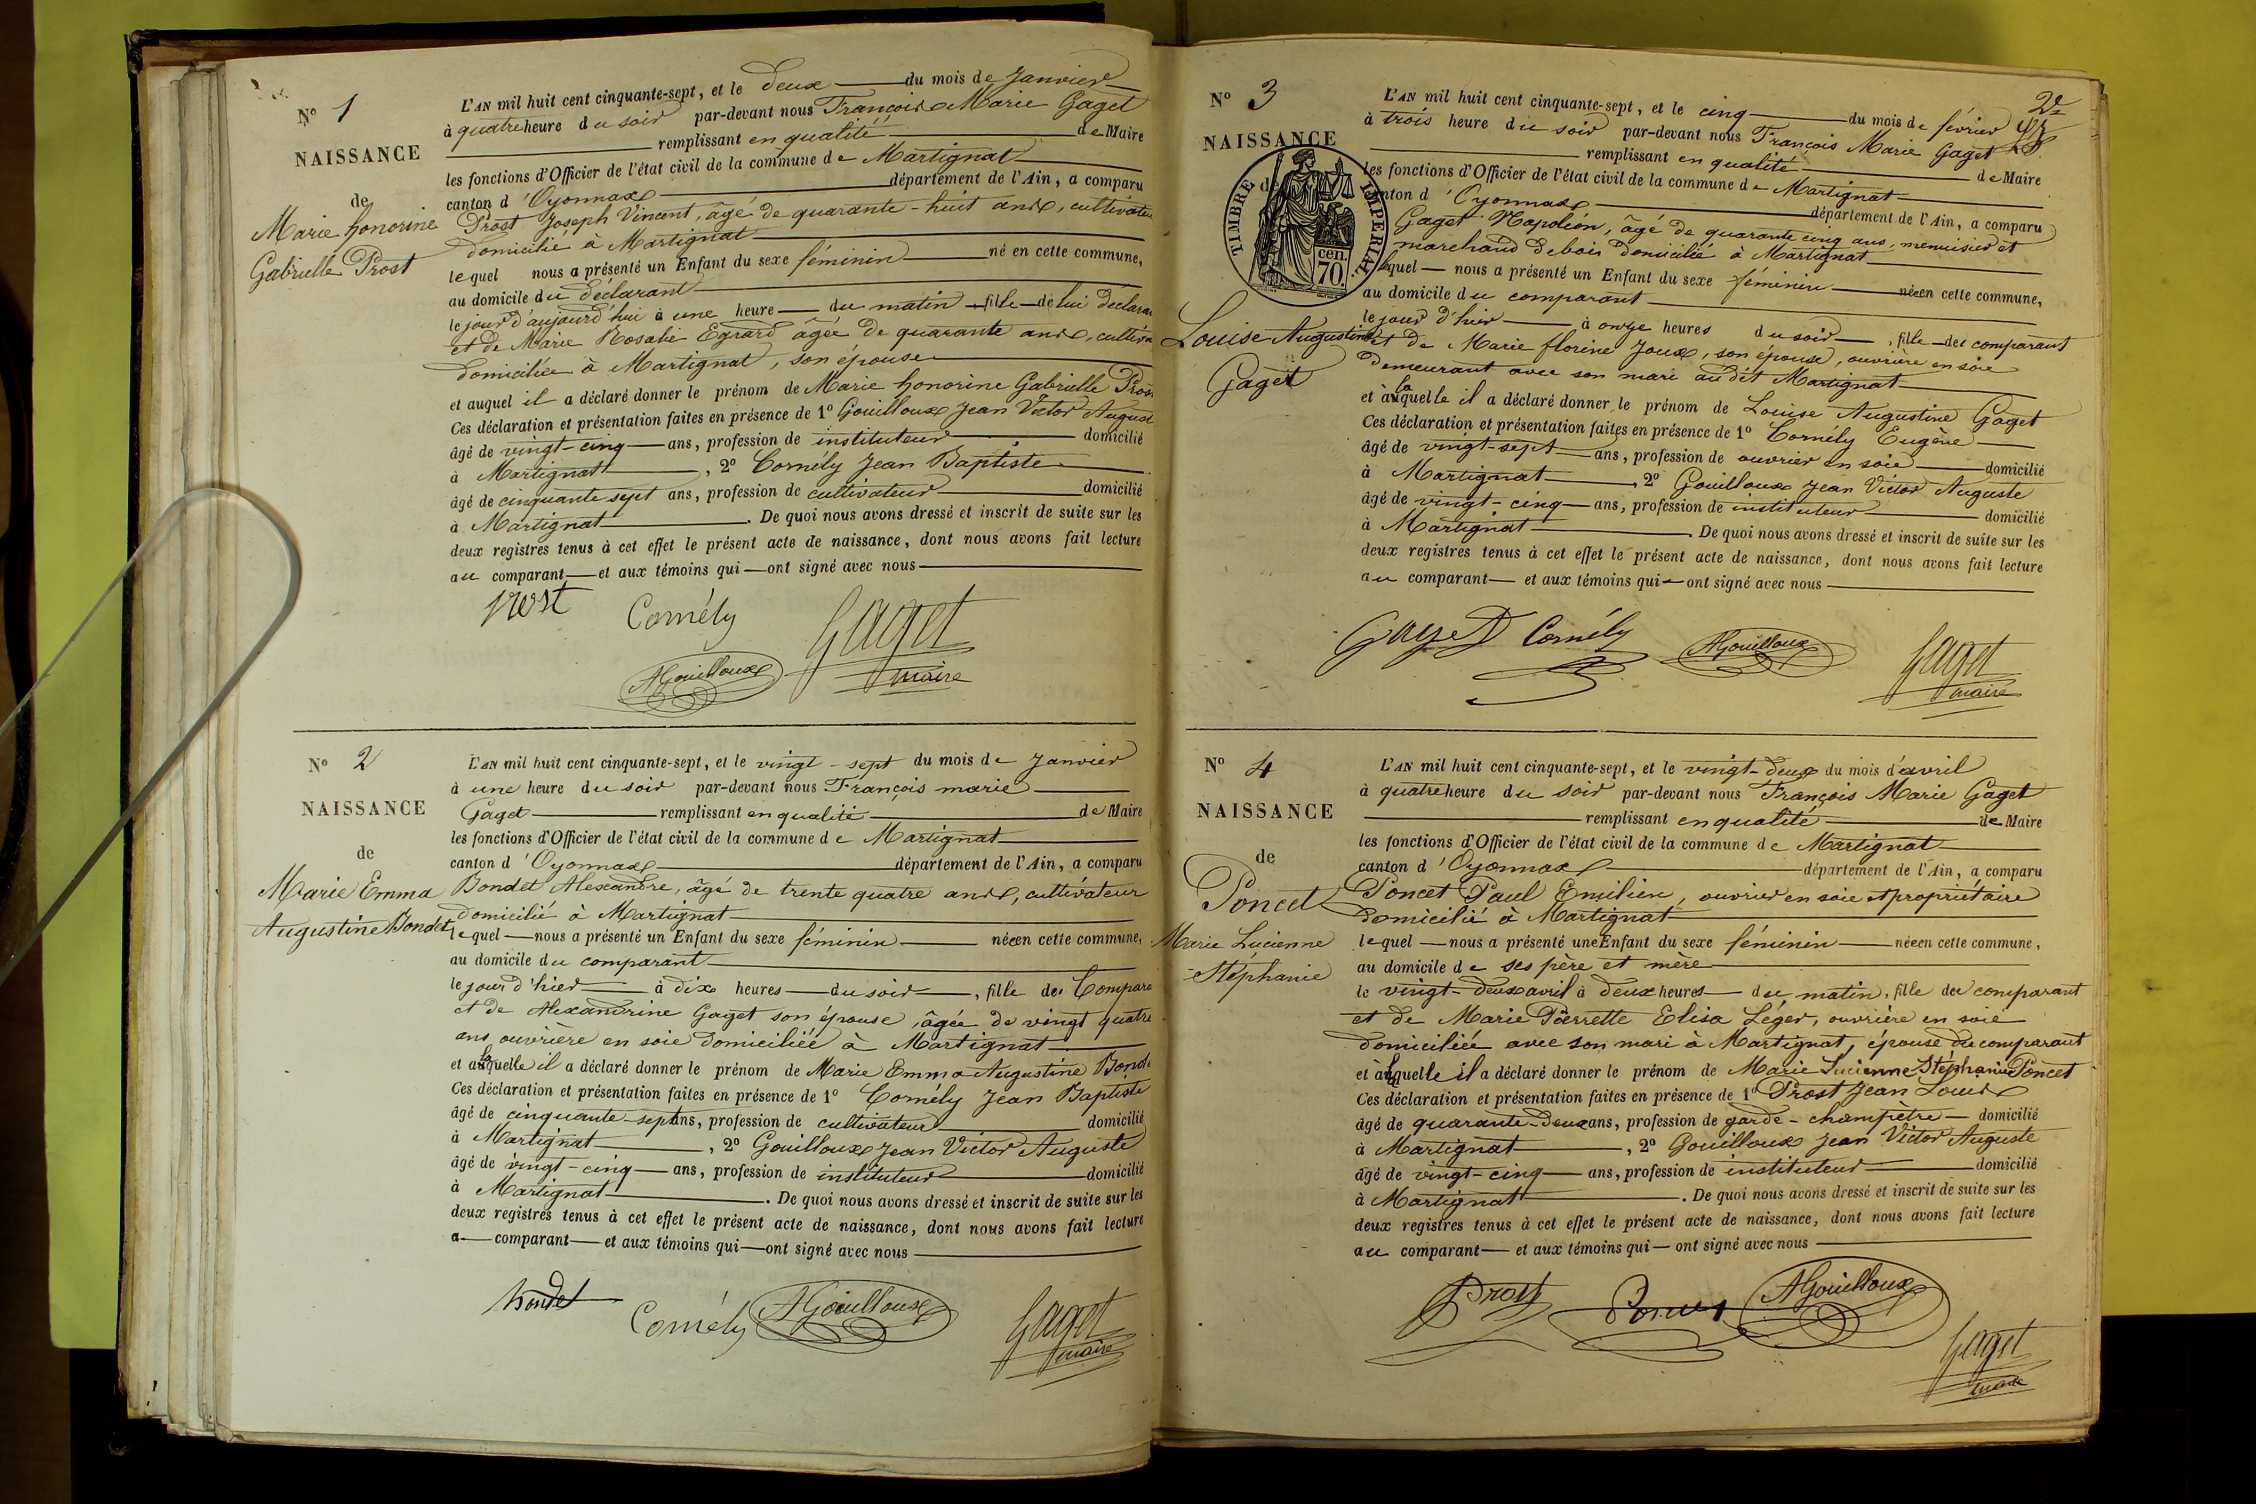 N° 1
NAISSANCE
de
Marie honorine
Gabrielle Prost
L'AN mil huit cent cinquante-sept, et le deux du mois de Janvier
à quatre heure du soir par-devant nous François Marie Gaget
remplissant en qualité de Maire
les fonctions d'Officier de l'état civil de la commune de Martignat
canton d'Oyonnax département de l'Ain, a comparu
Prost Joseph Vincent, âgé de quarante-huit ans, cultivateu
domicilié à Martignat
lequel nous a présenté un Enfant du sexe féminin né en cette commune,
au domicile du déclarant
le jour d'aujourd'hui à une heure du matin fille de lui déclara
et de Marie Rosalie Egrard âgée de quarante ans, cultiva
domiciliée à Martignat, son épouse
et auquel il a déclaré donner le prénom de Marie honorine Gabrielle Pros
Ces déclaration et présentation faites en présence de 1° Gouilloux Jean Victor August
âgé de vingt-cinq ans, profession de instituteur domicilié
à Martignat, 2° Comély Jean Baptiste
âgé de cinquante sept ans, profession de cultivateur domicilié
à Martignat. De quoi nous avons dressé et inscrit de suite sur les
deux registres tenus à cet effet le présent acte de naissance, dont nous avons fait lecture
au comparant et aux témoins qui ont signé avec nous
prost Comély Gaget
AGouilloux maire
N° 2
NAISSANCE
de
Marie Emma
Augustine Bondet
L'AN mil huit cent cinquante-sept, et le vingt-sept du mois de Janvier
à une heure du soir par-devant nous François marie
Gaget remplissant en qualité de Maire
les fonctions d'Officier de l'état civil de la commune de Martignat
canton d'Oyonnax département de l'Ain, a comparu
Bondet Alexandre, âgé de trente quatre ans, cultivateur
domicilié à Martignat
lequel nous a présenté un Enfant du sexe féminin née en cette commune,
au domicile du comparant
le jour d'hier à dix heures du soir, fille de Compara
et de Alexandrine Gaget son épouse, âgée de vingt quatre
ans ouvrière en soie domiciliée à Martignat
et à laquelle il a déclaré donner le prénom de Marie Emma Augustine Bonde
Ces déclaration et présentation faites en présence de 1° Comély Jean Baptiste
âgé de cinquante-sept ans, profession de cultivateur domicilié
à Martignat, 2° Gouilloux Jean Victor Auguste
âgé de vingt-cinq ans, profession de instituteur domicilié
à Martignat. De quoi nous avons dressé et inscrit de suite sur les
deux registres tenus à cet effet le présent acte de naissance, dont nous avons fait lecture
a comparant et aux témoins qui ont signé avec nous
bondet Comély AGouilloux Gaget
maire
N° 3
NAISSANCE
de
TIMBRE IMPERIAL
cen.
70.
Louise Augustine
Gaget
2e
L'AN mil huit cent cinquante-sept, et le cinq du mois de février
à trois heure du soir par-devant nous François Marie Gaget
remplissant en qualité de Maire
les fonctions d'Officier de l'état civil de la commune de Martignat
canton d'Oyonnax département de l'Ain, a comparu
Gaget Napoléon, âgé de quarante cinq ans, menuisier et
marchand de bois domicilié à Martignat
lequel nous a présenté un Enfant du sexe féminin née en cette commune,
au domicile du comparant
le jour d'hier à onze heures du soir, fille de comparant
et de Marie florine Joux, son épouse, ouvrière en soie
demeurant avec son mari au dit Martignat
et à laquelle il a déclaré donner le prénom de Louise Augustine Gaget
Ces déclaration et présentation faites en présence de 1° Comély Eugène
âgé de vingt-sept ans, profession de ouvrier en soie domicilié
à Martignat, 2° Gouilloux Jean Victor Auguste
âgé de vingt-cinq ans, profession de instituteur domicilié
à Martignat. De quoi nous avons dressé et inscrit de suite sur les
deux registres tenus à cet effet le présent acte de naissance, dont nous avons fait lecture
au comparant et aux témoins qui ont signé avec nous
Gaget Comély AGouilloux Gaget
maire
N° 4
NAISSANCE
de
Poncet
Marie Lucienne
Stéphanie
L'AN mil huit cent cinquante-sept, et le vingt-deux du mois d'avril
à quatre heure du soir par-devant nous François Marie Gaget
remplissant en qualité de Maire
les fonctions d'Officier de l'état civil de la commune de Martignat
canton d'Oyonnax département de l'Ain, a comparu
Poncet Paul Emilien, ouvrier en soie et propriétaire
domicilié à Martignat
lequel nous a présenté une Enfant du sexe féminin née en cette commune,
au domicile de ses père et mère
le vingt-deux avril à deux heures du matin, fille du comparant
et de Marie Pierrette Elisa Léger, ouvrière en soie
domiciliée avec son mari à Martignat, épouse du comparant
et à laquelle il a déclaré donner le prénom de Marie Lucienne Stéphanie Poncet
Ces déclaration et présentation faites en présence de 1° Prost Jean Louis
âgé de quarante-deux ans, profession de garde-champêtre domicilié
à Martignat, 2° Gouilloux Jean Victor Auguste
âgé de vingt-cinq ans, profession de instituteur domicilié
à Martignat. De quoi nous avons dressé et inscrit de suite sur les
deux registres tenus à cet effet le présent acte de naissance, dont nous avons fait lecture
au comparant et aux témoins qui ont signé avec nous
Prost Poncet AGouilloux
Gaget
maire